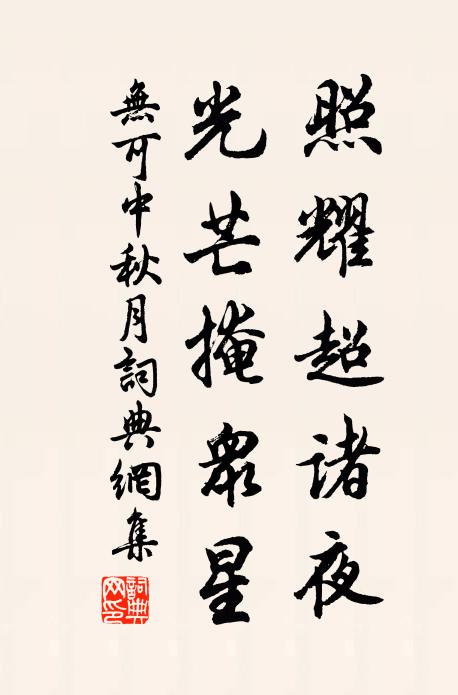 照耀超诸夜
光芒掩衆星
無可中秋月詞典網集
詞典网印